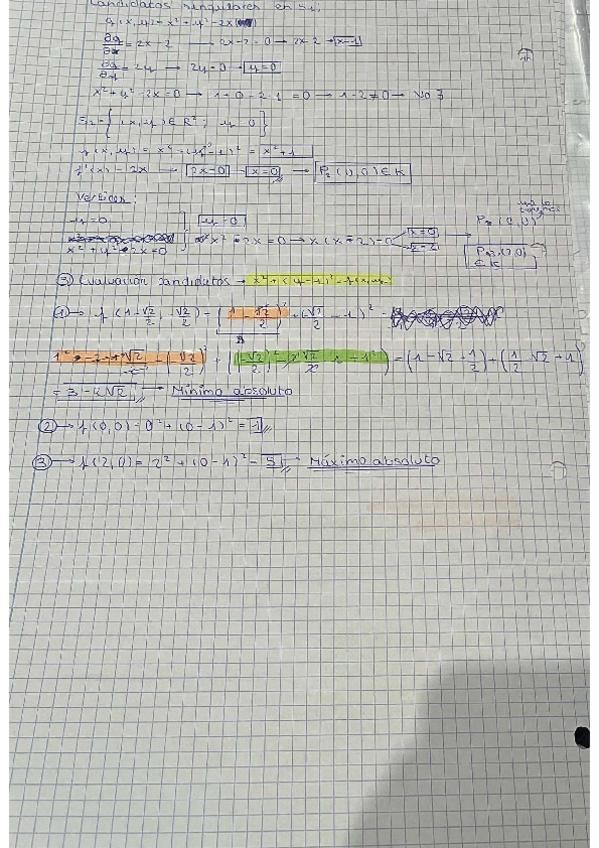 Candidatos singulares en S1:
g(x,y) = x² + y² - 2x
∂g/∂x = 2x - 2 → 2x - 2 = 0 → 2x = 2 → x = 1
∂g/∂y = 2y → 2y = 0 → y = 0
x² + y² - 2x = 0 → 1 + 0 - 2·1 = 0 → 1 - 2 ≠ 0 → No ∃
S2 = { (x,y) ∈ R²; y = 0 }
f(x,y) = x² + (y-1)² = x² + 1
f'(x) = 2x → 2x = 0 → x = 0 → P2(0,0) ∈ K
Vértices:
y = 0
x² + y² - 2x = 0
y = 0
x² - 2x = 0 → x(x - 2) = 0
x = 0
x = 2
P2(0,0)
P3(2,0) ∈ K
③ Evaluación candidatos → x² + (y-1)² = f(x,y)
① → f(1 - √2/2, √2/2) = (1 - √2/2)² + (√2/2 - 1)² =
= (1 - √2 + 1/2) + (1/2 - √2 + 1)
= 3 - 2√2 → Mínimo absoluto
② → f(0,0) = 0² + (0 - 1)² = 1
③ → f(2,0) = 2² + (0 - 1)² = 5 → Máximo absoluto